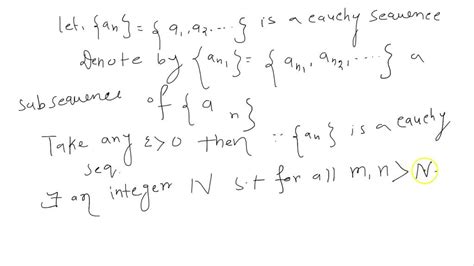 let, {an} = {a1, a2 ....} is a cauchy sequence
Denote by {an1} = {an1, an2, ....} a
subsequence of {an}
Take any ε>0 then ∵ {an} is a cauchy
seq.
∃ an integer N s.t for all m, n > N.